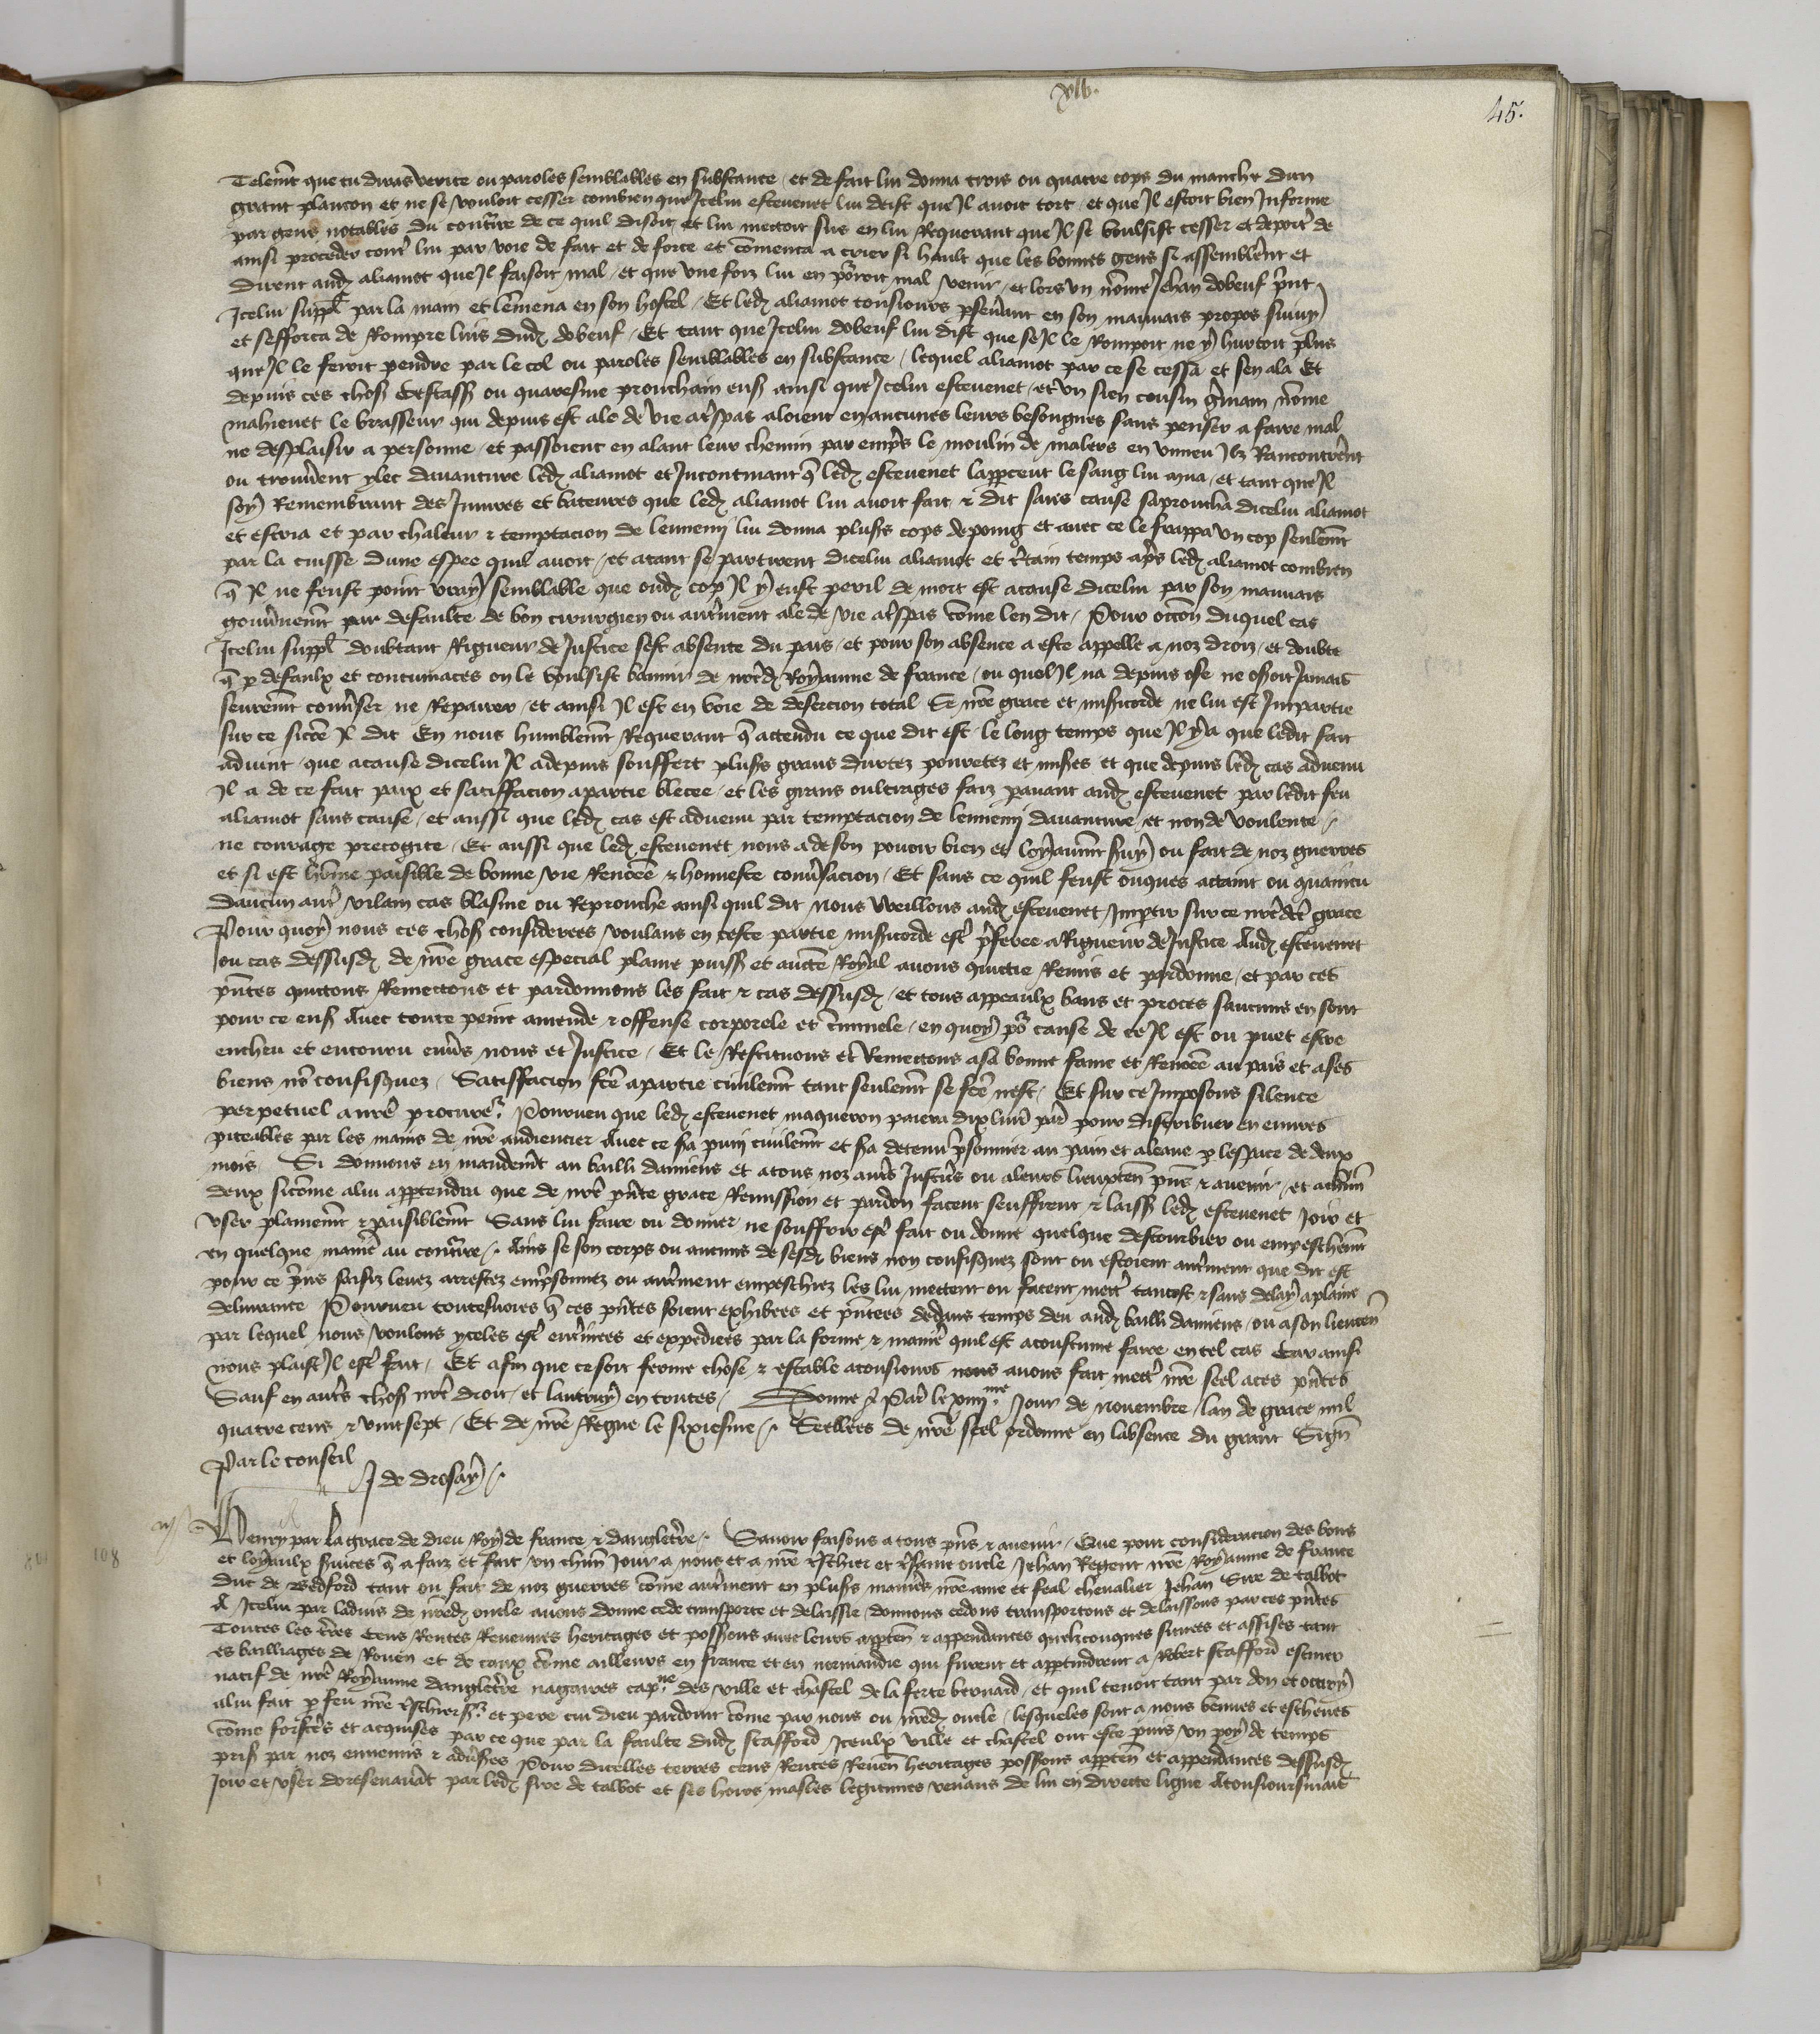 xlv.
45.
Telemt que tu diras verite ou paroles semblables en substance / et de fait lui donna trois ou quatre cops du manche dun
grant plancon et ne se vouloit cesser combien que Icelui estevenet lui deist que Il avoit tort / et que Il estoit bien Informe
par gens notables du contre de ce quil disoit et lui mettoit sus en lui Requerant que Il se voulsist cesser et deport de
ainsi proceder cont lui par voie de fait et de force et comenca a crier si hault que les bonnes gens si assemblerent et
dirent aud aliamot que Il faisoit mal / et que une foiz lui en porroit mal venir / et lors un nome Jehan dobeuf print
Icelui suppl par la main et lemena en son hostel / Et led aliamot tousiours pseverant en son mauvais propos suivy
et sefforca de Rompre luis dud dobeuf / Et tant que Icelui dobeuf lui dist que se Il le Rompoit ne y hurtoit plus
que Il le feroit pendre par le col ou paroles semblables en substance / lequel aliamot par ce se cessa et sen ala Et
depuis ces chos Cestass ou quaresme prouchain ens ainsi que Icelui estevenet / et un sien cousin gmain nome
mahieuet le brasseur qui depuis est ale de vie a trespas aloient en aucunes leurs besongnes sans penser a faire mal
ne desplaisir a personne / et passoient en alant leur chemin par empres le moulin de malers en vimeu Ilz Rancontrerent
ou trouverent ylec davanture led aliamot et Incontinant q led estevenet lappceut le sang lui mua / et tant que Il
soy Remembrant des Iniures et bateures que led aliamot lui avoit fait & dit sans cause saproucha dicelui aliamot
et escria et par chaleur & temptacion de lennemi lui donna pluss cops de poing et avec ce le frappa un cop seulemt
par la cuisse dune espee quil avoit / et atant se partirent dicelui aliamot et certain temps apres led aliamot combien
q Il ne feust point vray semblable que oud cop Il y eust peril de mort est a cause dicelui par son mauvais
gouvnemt par defaulte de bon cirurgien ou autrement ale de vie a trespas come len dit / Pour occon duquel cas
Icelui suppl doubtant Rigueur de Justice sest absente du pais / et pour son absence a este appelle a noz droiz / et doubte
q p defaulx et contumaces on le voulsist bannir de nred Royaume de france / ou quel Il na depuis ose ne oseroit Jamais
seuremt converser ne Repairer / et ainsi Il est en voie de desercion total Se nre grace et misericorde ne lui est Impartie
sur ce sicome Il dit En nous humblemt Requerant q attendu ce que dit est / le long temps que Il y a que ledit fait
advint / que a cause dicelui Il a depuis souffert pluss grans durtez povretez et mises et que depuis led cas advenu
Il a de ce fait paix et satisffacion a partie blecee / et les grans oultrages faiz pavant aud estevenet par ledit feu
aliamot sans cause / et aussi que led cas est advenu par temptacion de lennemi davanture / et non de voulente /
ne courage precogite / Et aussi que led estevenet nous a de son pouoir bien et loyaumt servy ou fait de noz guerres
et si est home paisible de bonne vie Renomee & honneste conversacion / Et sans ce quil feust onques attaint ou quaincu
daucun aut vilain cas blasme ou Reprouche ainsi quil dit Nous veillons aud estevenet Imptir sur ce nred grace
Pour quoy nous ces chos considerees / voulans en ceste partie misericorde est preferee a Rigueur de Justice Aud estevenet
ou cas dessusd de nre grace especial plaine puiss et aucte Royal avons quictie Remis et pardonne / et par ces
pntes quictons Remettons et pardonnons les fait & cas dessusd / et tous appeaulx bans et proces saucuns en sont
pour ce ens Avec toute peine amende & offense corporele et criminele / en quoy por cause de ce Il est ou puet estre
encheu et encouru envers nous et Justice / Et le Restituons et Remettons a sa bonne fame et Renomee au pais et a ses
biens non confisquez / Satisffacion fcte a partie civilemt tant seulemt se fcte nest / Et sur ce Imposons silence
perpetuel a nre procureur Pourveu que led estevenet maqueron paiera dix livres par pour distribuer en euvres
piteables par les mains de nre audiencier Avec ce sa puny civilemt et sa detenu prisonnier au pain et a leaue p lespace de deux
mois / Si donnons en mandemt au bailli damiens et a tous noz auts Justicrs ou a leurs lieuxten pns & avenir / et a chun
deulx sicome a lui apptendra que de nre pnte grace Remission et pardon facent seuffrent & laiss led estevenet joir et
user plainemt & paisiblemt Sans lui faire ou donner / ne souffrir est fait ou donne quelque destourbier ou empeschemt
en quelque maniere au contre / Ains se son corps ou aucuns de sesd biens non confisquez sont ou estoient autrement que dit est
pour ce prins saisiz levez arrestez emprisonnez ou autrement empeschiez les lui mettent ou facent mett tantost & sans delay a plaine
delivrance Pourveu toutesvoies q ces pntes soient exhibees et pntees dedans temps deu aud bailli damiens / ou a son lieuten
par lequel nous voulons yceles est enterinees et expediees par la forme & maniere quil est acoustume faire en tel cas Car ainsi
nous plaist Il est fait / Et afin que ce soit ferme chose & estable a tousiours nous avons fait mett nre seel a ces pntes
Sauf en auts chos nre droit / et lautruy en toutes / Donne a Paris le xiiiime Jour de novembre / lan de grace mil
quatre cens & vint sept / Et de nre Regne le sixiesme / Seellees de nre seel ordonne en labsence du grant Sign
Par le conseil
J de drosay /
108
Henry par la grace de dieu Roy de france & dangleterre / Savoir faisons a tous pns & avenir / Que pour consideracion des bons
et loyaulx suices q a faiz et fait un chun Jour a nous et a nre treschier et tresame oncle Jehan Regent nre Royaume de france
duc de Bedford tant ou fait de noz guerres come autrement en pluss manieres nre ame et feal chevalier Jehan Sire de talbot
A Icelui par ladvis de nred oncle avons donne cede transporte et delaissie / donnons cedons transportons et delaissons par ces pntes
Toutes les terres Cens Rentes Revenues heritages et possessions avec leurs apparten & appendances quelzconques situees et assises tant
es bailliages de Rouen et de caux come ailleurs en france et en normandie qui furent et appartindrent a Robert stafford escuier
natif de nre Royaume dangleterre nagaires capne des ville et chastel de la ferte bernard / et quil tenoit tant par don et octroy
a lui fait p feu nre treschierss et pere cui dieu pardoint come par nous ou nred oncle / lesqueles sont a nous venues et escheues
come forfctes et acquises par ce que par la faulte dud stafford Iceulx ville et chastel ont este puis un poy de temps
pris par noz ennemis & adversres Pour dicelles terres cens Rentes Reven heritages possessions apparten et appendances dessusd
Joir et user doresenavant par led sire de talbot et ses hoirs masles legitimes venans de lui en directe ligne A tousioursmais